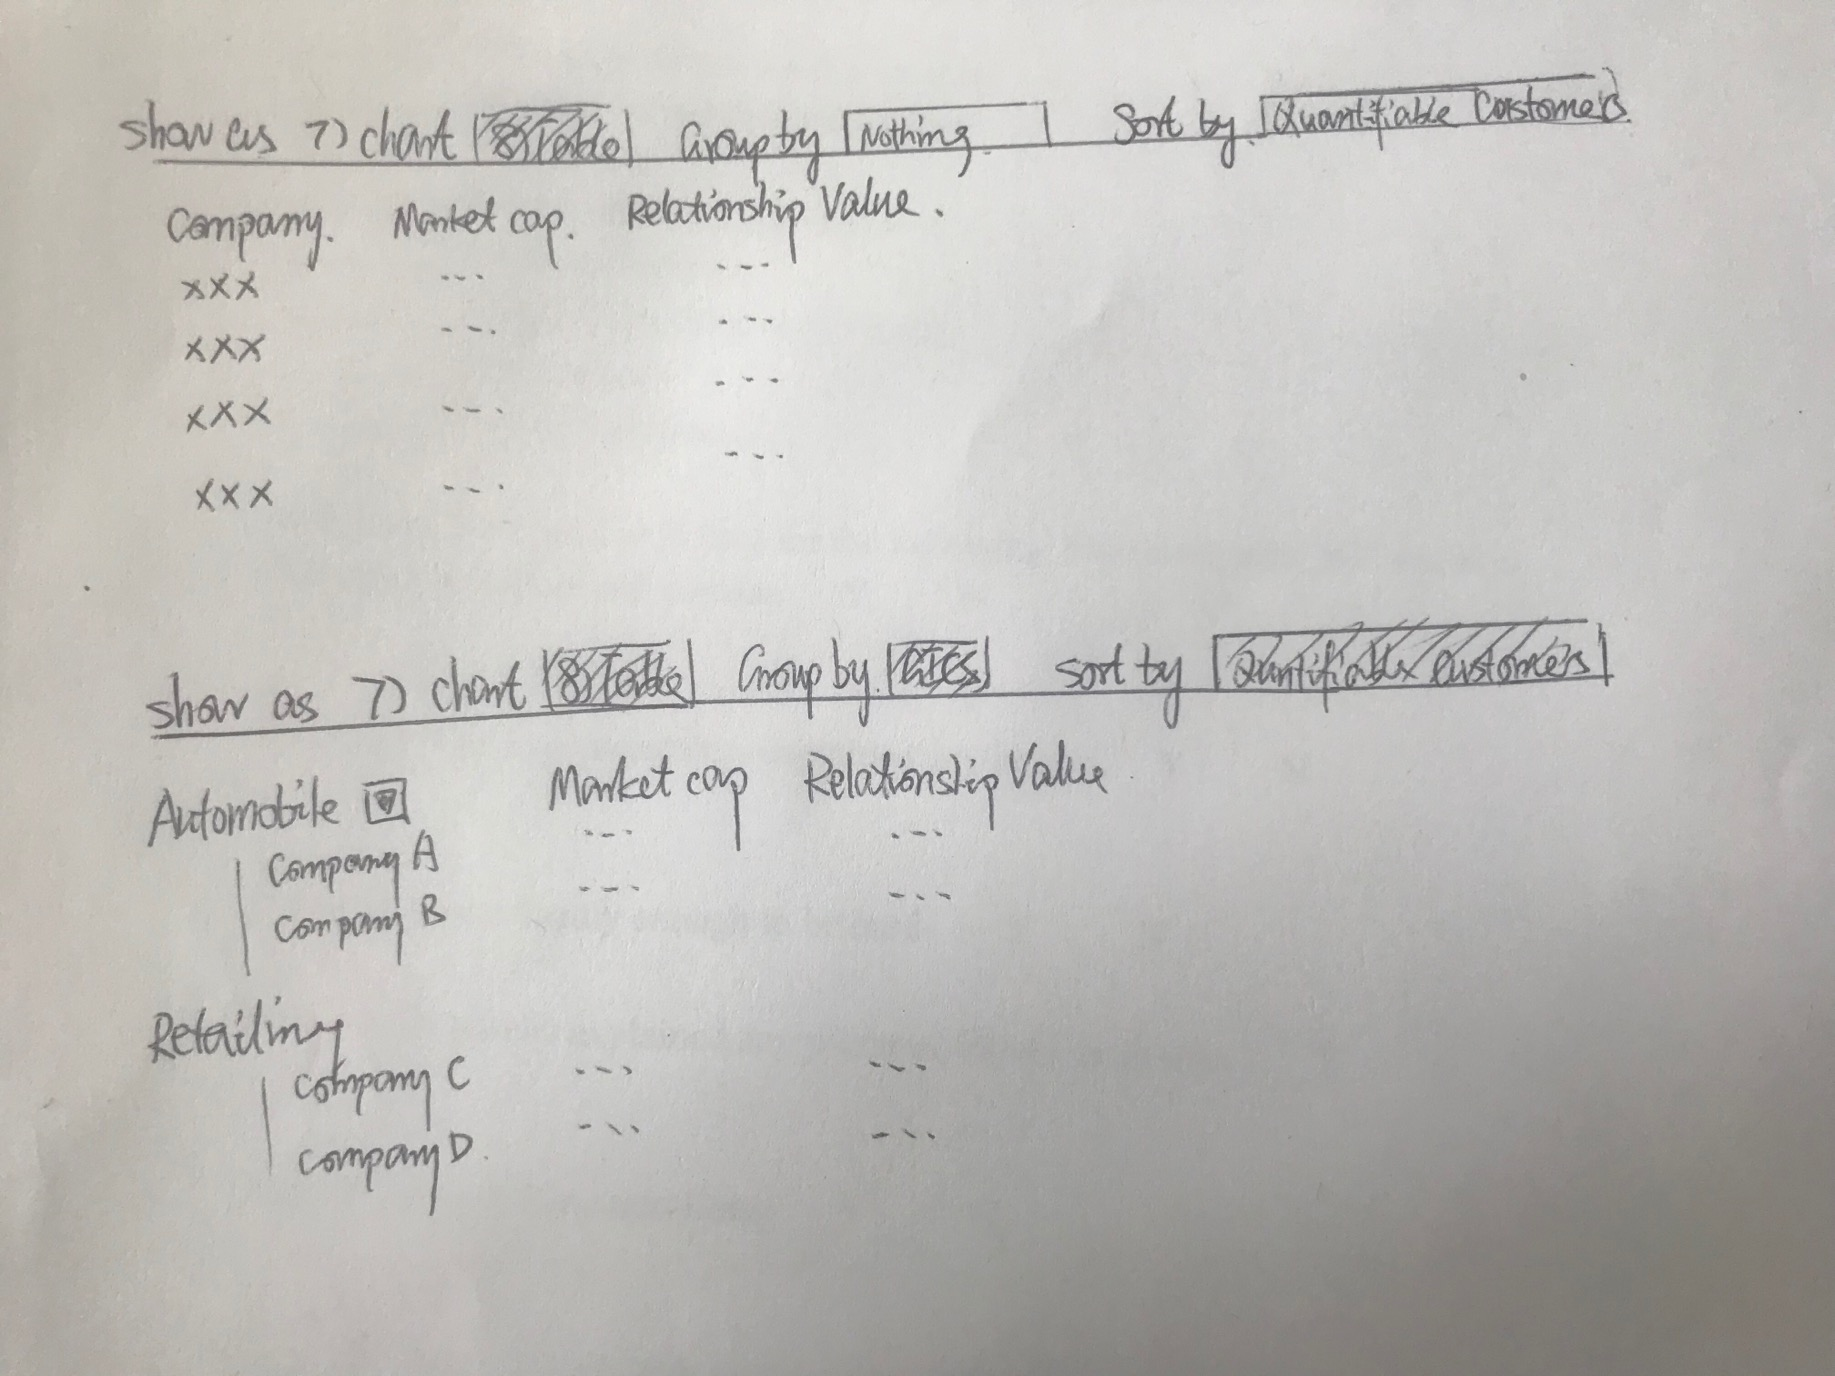 show as 7) chart 8) Table Group by Nothing Sort by Quantifiable Customers
Company. Market cap. Relationship Value.
xxx --- ---
xxx --- ---
xxx --- ---
xxx --- ---
show as 7) chart 8) Table Group by GICS sort by Quantifiable Customers
Automobile Market cap Relationship Value
Company A --- ---
Company B --- ---
Retailing
Company C --- ---
Company D. --- ---